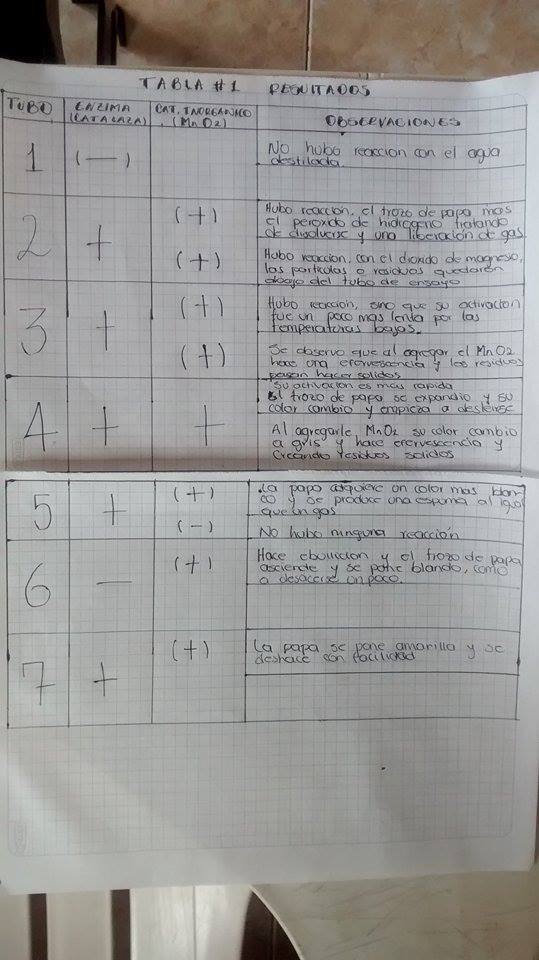 TABLA #1 RESULTADOS
TUBO
ENZIMA
(CATALAZA)
CAT. INORGANICO
(MnO2)
OBSERVACIONES
1
(—)
No hubo reaccion con el agua
destilada.
2
+
(+)
Hubo reaccion, el trozo de papa mas
el peroxido de hidrogeno tratando
de disolverse y una liberación de gas
(+)
Hubo reaccion, con el dioxido de magnesio,
las particulas o residuos quedaron
abajo del tubo de ensayo
3
+
(+)
Hubo reacción, sino que su activacion
fue un poco mas lenta por las
temperaturas bajas.
(+)
Se observo que al agregar el MnO2
hace una efervescencia y los residuos
pasan hacer solidos
4
+
+
Su activacion es mas rapida
El trozo de papa se expandio y su
color cambio y empieza a desteirse
Al agregarle MnO2 su color cambio
a gris y hace efervescencia y
Creando residuos solidos
5
+
(+)
La papa adquiere un color mas blan-
co y se produce una espuma al igual
que un gas
(-)
No hubo ninguna reacción
6
—
(+)
Hace ebullicion y el trozo de papa
asciende y se pone blando, como
a desacerse un poco.
7
+
(+)
La papa se pone amarilla y se
deshace con facilidad